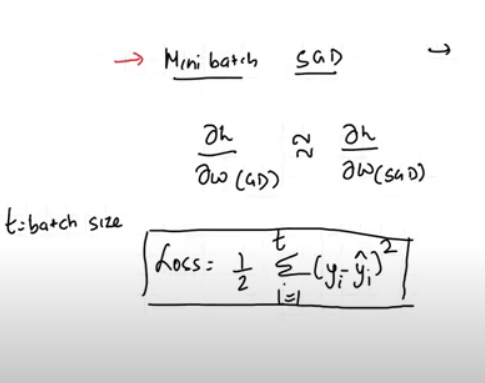 → Mini batch SGD →
∂h/∂w (GD) ≈ ∂h/∂w (SGD)
t=batch size
Loss= 1/2 Σ_{i=1}^{t} (y_i - ŷ_i)^2